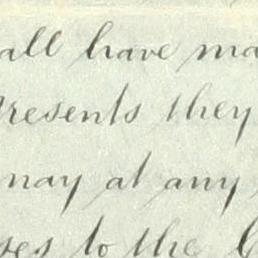 all have ma
resents they
may at any
ses to the